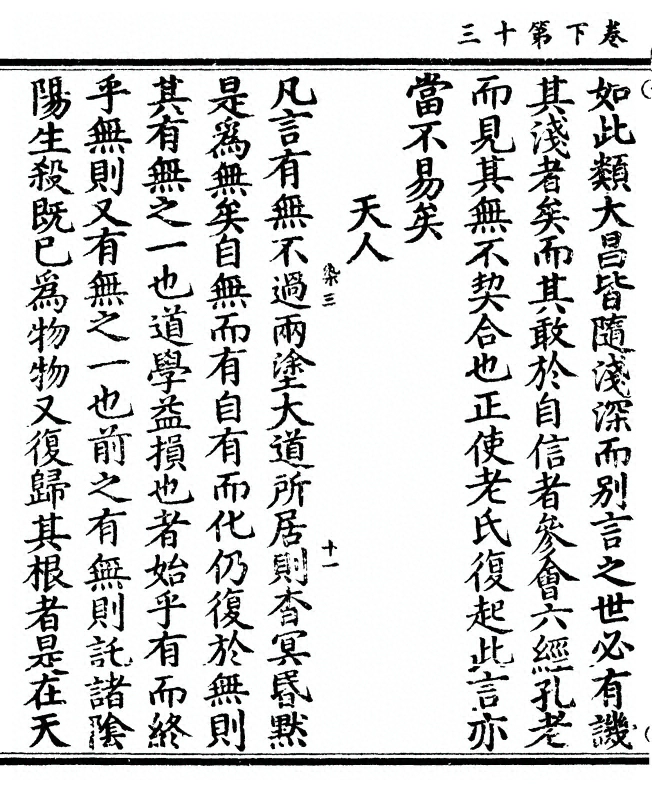 卷下第十三
如此類大昌皆隨淺深而別言之世必有譏
其淺者矣而其敢於自信者參會六經孔老
而見其無不契合也正使老氏復起此言亦
當不易矣
天人
染三
十一
凡言有無不過兩塗大道所居則杳冥昏默
是爲無矣自無而有自有而化仍復於無則
其有無之一也道學益損也者始乎有而終
乎無則又有無之一也前之有無則託諸陰
陽生殺既已爲物物又復歸其根者是在天